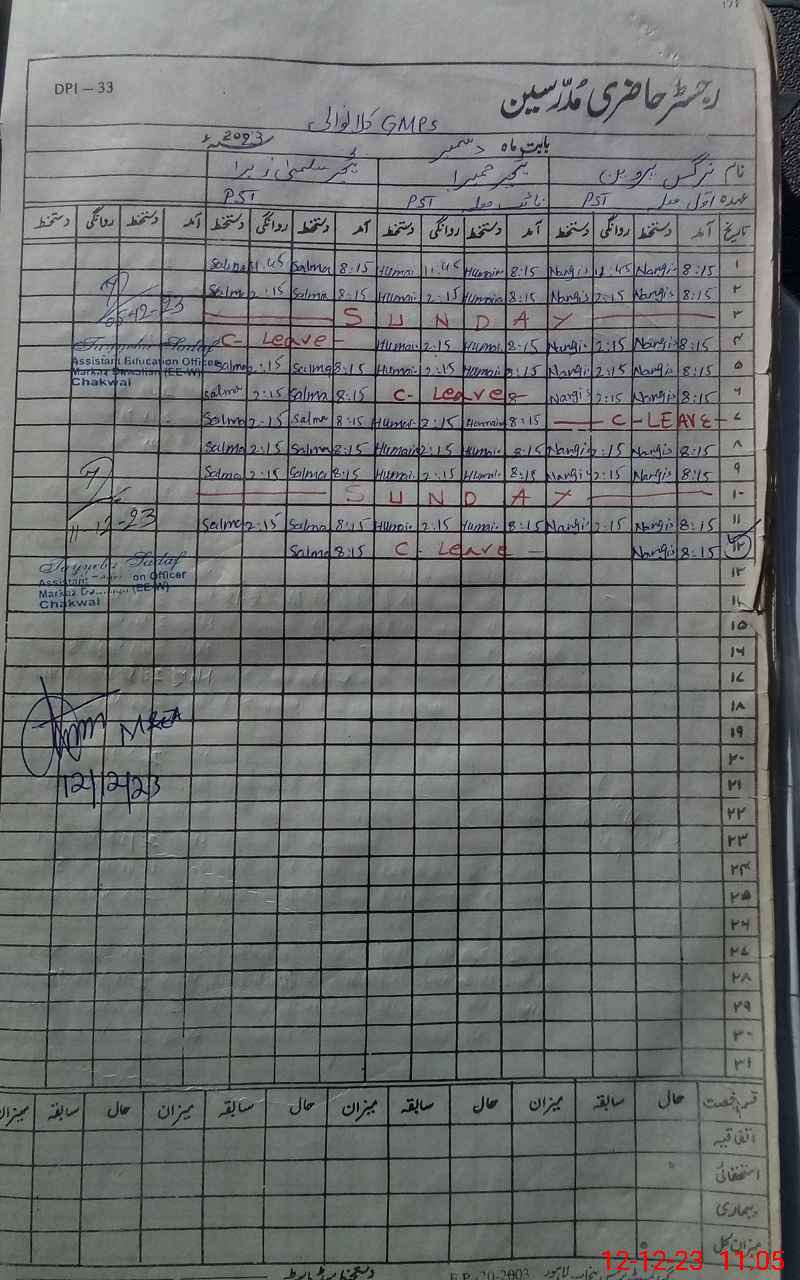 DPI – 33
رجسٹر حاضری مُدرّسین
GMPS
بابت ماہ دسمبر 2023ء
نام نرگس پروین
عہدہ اوّل PST PST PST
تاریخ آمد دستخط روانگی دستخط آمد دستخط روانگی دستخط آمد دستخط روانگی دستخط آمد دستخط روانگی دستخط
۱ 8:15 Nargis 11:45 Nargis 8:15 Humaira 11:45 Humai 8:15 Salma 11:45 Salma
۲ 8:15 Nargis 2:15 Nargis 8:15 Humaira 2:15 Humai 8:15 Salma 2:15 Salma
۳ SUNDAY
۴ 8:15 Nargis 2:15 Nargis 8:15 Humai 2:15 Humai C- Leave -
۵ 8:15 Nargis 2:15 Nargis 8:15 Humai 2:15 Humai 8:15 Salma 2:15 Salma
۶ 8:15 Nargis 2:15 Nargis C- Leave - 8:15 Salma 2:15 Salma
۷ C-LEAVE- 8:15 Humai 2:15 Humai 8:15 Salma 2:15 Salma
۸ 8:15 Nargis 2:15 Nargis 8:15 Humai 2:15 Humai 8:15 Salma 2:15 Salma
۹ 8:15 Nargis 2:15 Nargis 8:15 Humai 2:15 Humai 8:15 Salma 2:15 Salma
۱۰ SUNDAY
۱۱ 8:15 Nargis 2:15 Nargis 8:15 Humai 2:15 Humai 8:15 Salma 2:15 Salma
۱۲ 8:15 Nargis C- Leave - 8:15 Salma
۱۳
۱۴
۱۵
۱۶
۱۷
۱۸
۱۹
۲۰
۲۱
۲۲
۲۳
۲۴
۲۵
۲۶
۲۷
۲۸
۲۹
۳۰
۳۱
05-12-23
Tayyeba Sadaf
Assistant Education Officer
Markaz (EE-W)
Chakwal
11-12-23
Tayyeba Sadaf
Assistant on Officer
Markaz (EE-W)
Chakwal
MEA
12/12/23
قسم رخصت حال سابقہ میزان حال سابقہ میزان حال سابقہ میزان حال سابقہ میزان
اتفاقیہ
استحقاقی
بیماری
میزان کل
12-12-23 11:05